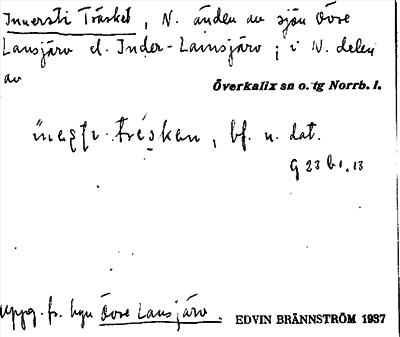 Innersti Träsket, N. änden av sjön Övre
Lansjärv el. Inder-Lainsjärv; i N. delen
av
Överkalix sn o. tg Norrb. l.
träskan, bf. n. dat.
G 23 b1.13
uppg. fr. byn Övre Lansjärv.
EDVIN BRÄNNSTRÖM 1937